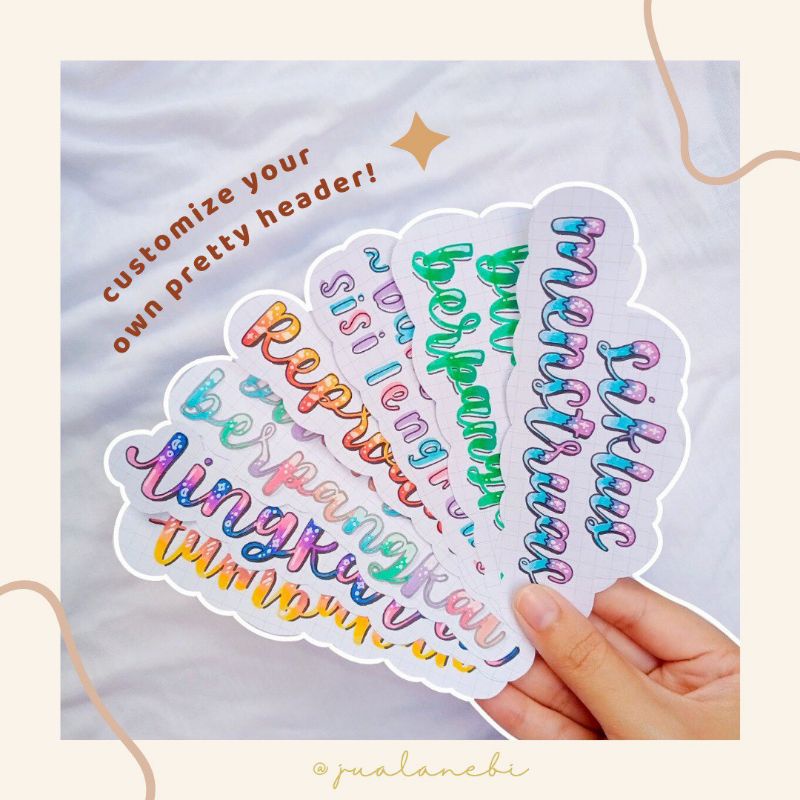 customize your
own pretty header!
siklus
menstruas
berpany
~ ba
sisi leng
Reprod
berpangkat
Lingkar
@jualanebi